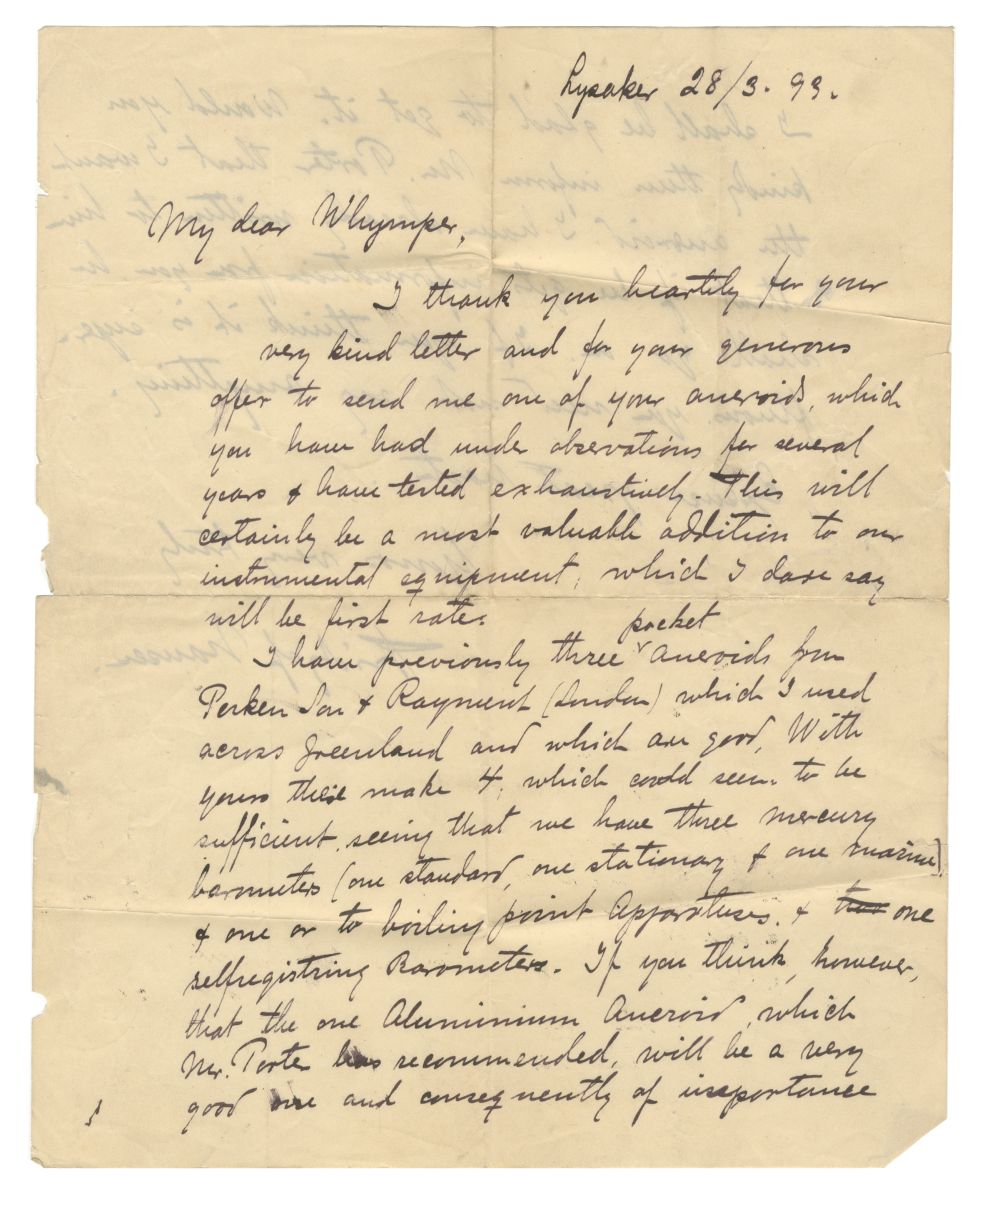 Lysaker 28/3. 93.
My dear Whymper,
I thank you heartily for your
very kind letter and for your generous
offer to send me one of your aneroids, which
you have had under observations for several
years & have tested exhaustively. This will
certainly be a most valuable addition to our
instrumental equipment, which I dare say
will be first rate.
pocket
I have previously three aneroids from
Perken Son & Rayment (London) which I used
across Greenland and which are good, With
yours these make 4, which could seem to be
sufficient, seeing that we have three mercury
barometers (one standard, one stationary & one marine)
& one or to boiling point Apparatuses, & one
selfregistring Barometer. If you think, however,
that the one Aluminium Aneroid, which
Mr. Porter has recommended, will be a very
good one and consequently of importance